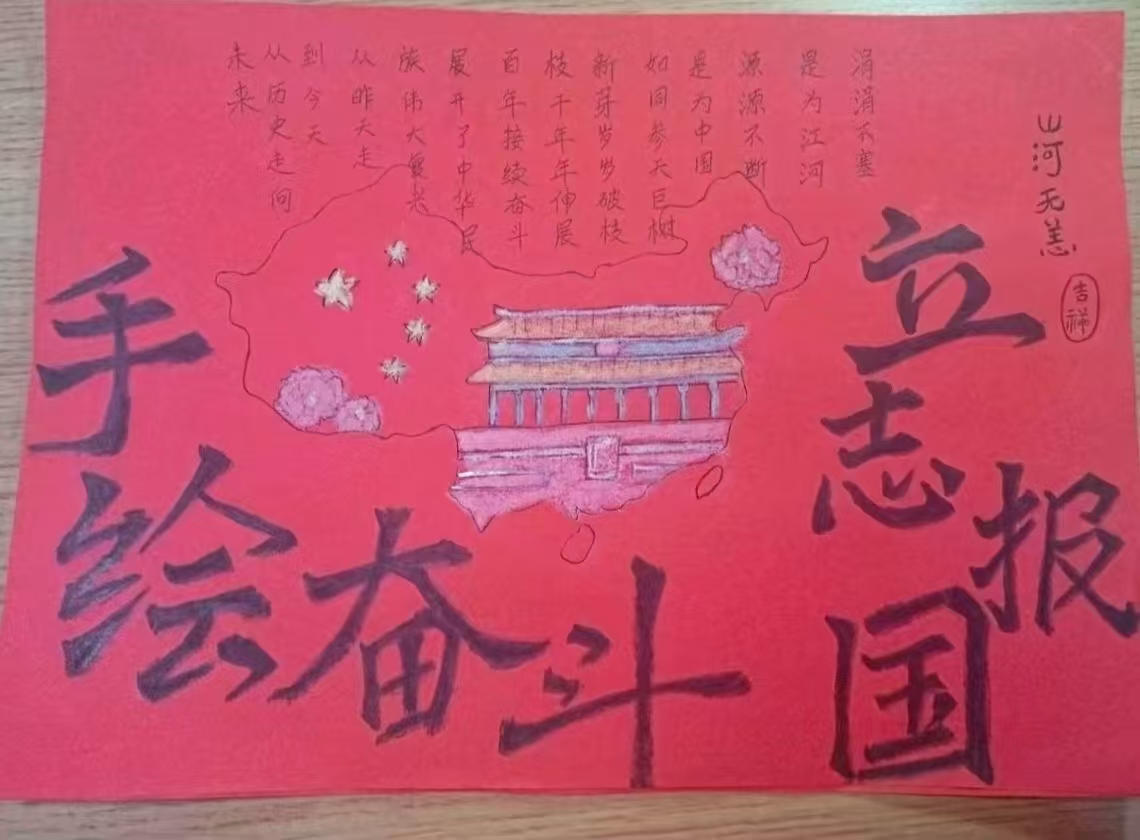 山河无恙
吉祥
涓涓不塞
是为江河
源源不断
是为中国
如同参天巨树
新芽岁岁破枝
枝干年年伸展
百年接续奋斗
展开了中华民
族伟大复兴
从昨天走
到今天
从历史走向
未来
立志报国
手绘奋斗